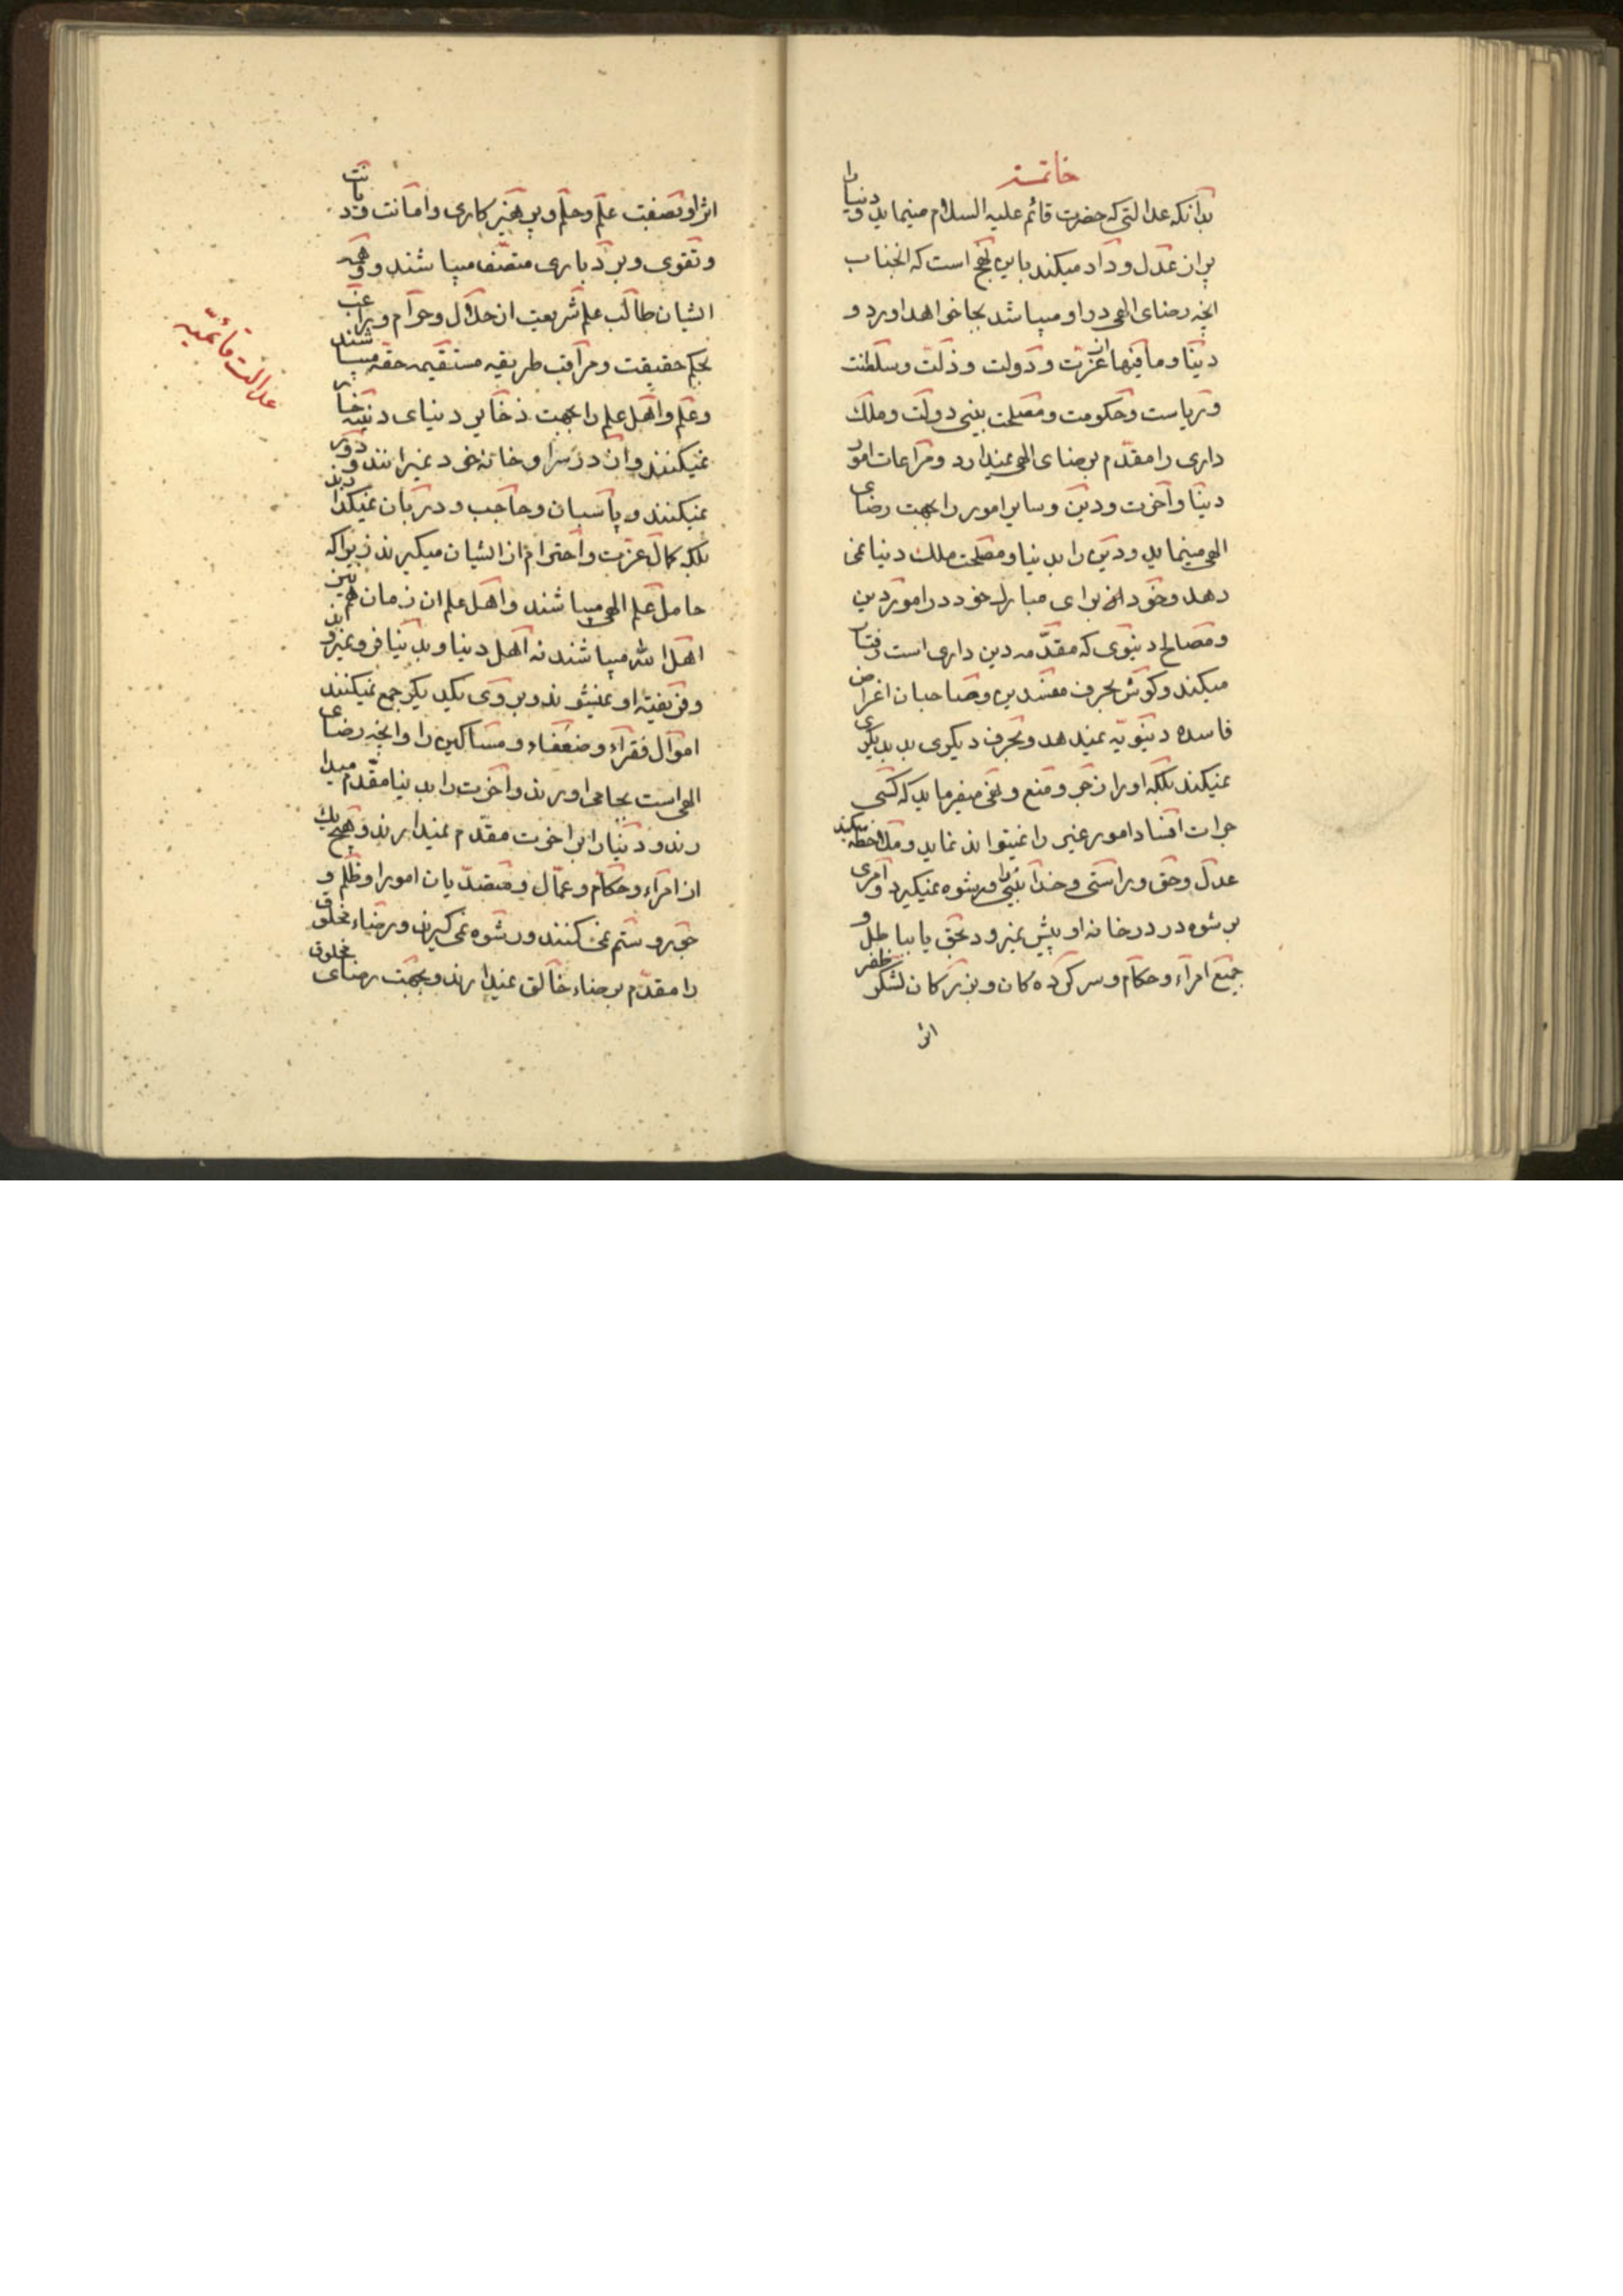 خاتمه
بدانکه عدالتی که حضرت قائم علیه السلام مینماید و دنیا را
پر از عدل و داد میکند باین نهج است که انجناب
انچه رضای الهی در او میباشد بجا خواهد اورد و
دنیا و مافیها از عزت و دولت و ذلت و سلطنت
و ریاست و حکومت و مصلحت بینی دولت و ملک
داری را مقدم برضای الهی نمیدارد و مراعات امور
دنیا و آخرت و دین و سایر امور را بجهت رضای
الهی مینماید و دین را بدنیا و مصلحت ملک دنیا نمی
دهد و خود از برای مبارک خود در امور دین
و مصالح دنیوی که مقدمه دین داری است رفتار
میکند و کوش بحرف مفسدین و صاحبان اغراض
فاسده دنیویه نمیدهد و بحرف دیکری بد بدیکری
نمیکند بلکه او را زجر و منع و نفی میفرماید که کسی
جرات افساد امور غیر را نمیتواند نماید و ملاحظه میکند
عدل و حق و راستی و خدا بینی را و رشوه نمیکیرد و امری
برشوه در درخانه او پیش نمیرود بحق یا بباطل و
جمیع امراء و حکام و سرکرده کان و بزرکان لشکر ظفر
اثر
اثر او بصفت علم و حلم و پرهیزکاری و امانت و دیانت
و تقوی و بردباری متصف میباشند و همه
ایشان طالب علم شریعت از حلال و حرام و راغب
بحکم حقیقت و مراقب طریقه مستقیمه حقه میباشند
و علم و اهل علم را بجهت ذخایر دنیای دنیه خار
نمیکنند و از در سرا و خانه خود نمیرانند و دور
نمیکنند و پاسبان و حاجب و دربان نمیکذارند
بلکه کمال عزت و احترام از ایشان میکیرند زیرا که
حامل علم الهی میباشند و اهل علم ان زمان هم نیز
اهل الله میباشند نه اهل دنیا و بدنیا فرو نمیروند
و فریفته او نمیشوند و بر روی یکدیکر جمع نمیکنند
اموال فقراء و ضعفاء و مساکین را و انچه رضای
الهی است بجا می اورند و آخرت را بدنیا مقدم میدا
رند و دنیا را بر اخرت مقدم نمیدارند و هیچ یک
از امراء و حکام و عمال و متصدیان امور او ظلم و
جور و ستم نمی کنند و رشوه نمی کیرند و رضاء مخلوق
را مقدم برضاء خالق نمیدارند و بجهت رضای مخلوق
عدالت قائمیه